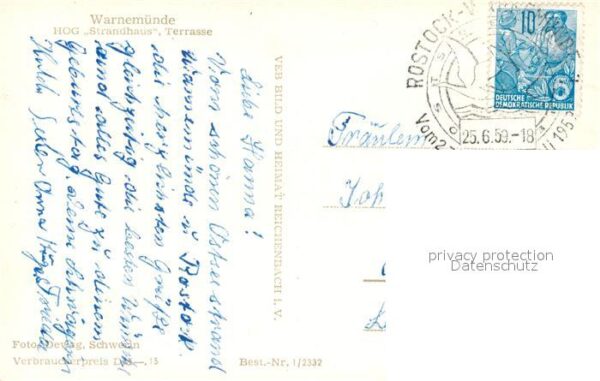 Warnemünde
HOG „Strandhaus“, Terrasse
Liebe Hanna!
Vom schönen Ostseestrand
Warnemünde u. Rostock
die herzlichsten Grüße
gleichzeitig die besten Wünsche
und alles Gute zu deinem
Geburtstag. Deine Schwägerin
Anna
VEB BILD UND HEIMAT REICHENBACH i. V.
Foto: Dewag, Schwerin
Verbraucherpreis DM —,15
Best.-Nr. 1/2332
ROSTOCK-
25.6.59.-18
10
DEUTSCHE
DEMOKRATISCHE REPUBLIK
Fräulein
Joh
privacy protection
Datenschutz